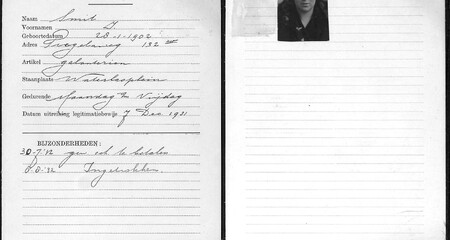 Naam Smit
Voornamen J.
Geboortedatum 28-1-1902
Adres 132
Artikel galanterien
Staanplaats Waterlooplein
Gedurende Maandag t/m Vrijdag
Datum uitreiking legitimatiebewijs 7 Dec 1921
BIJZONDERHEDEN:
te betalen
Ingetrokken.